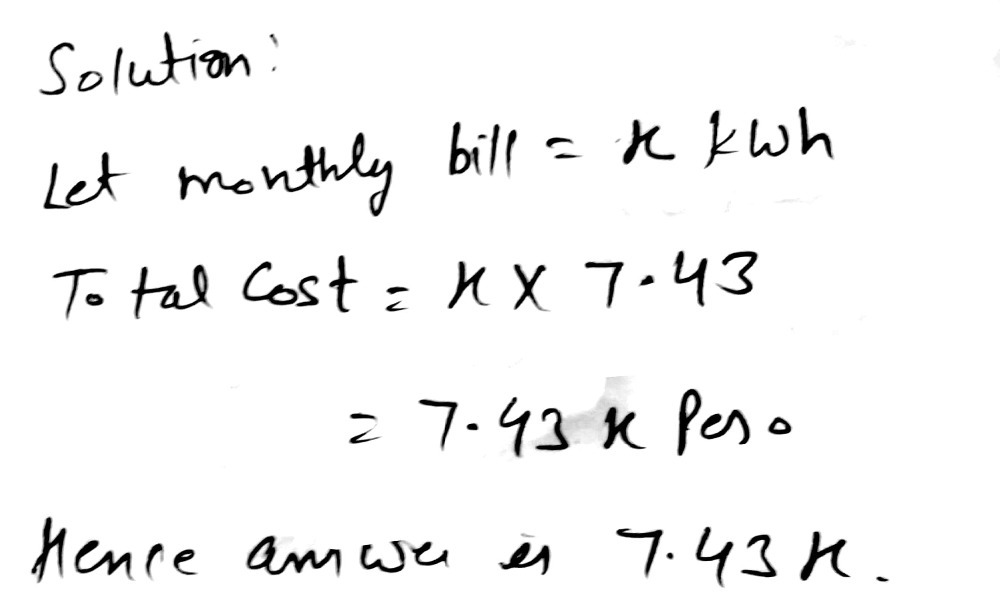 Solution:
Let monthly bill = x kWh
Total Cost = x X 7.43
= 7.43 x Peso
Hence answer is 7.43 x.